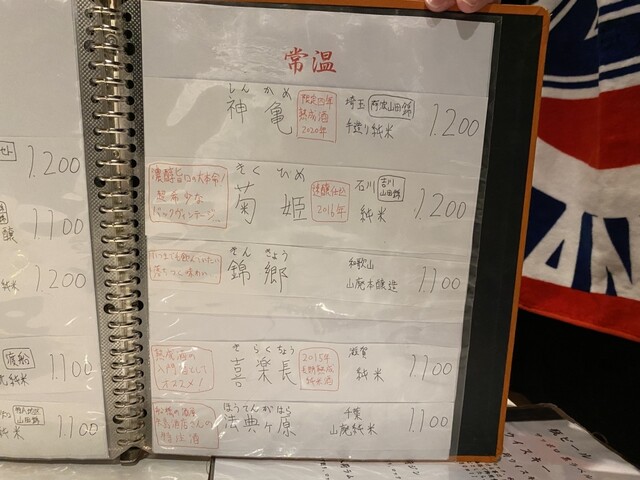 1.200
1.100
醸
1.200
純米
渡船
純米
1.100
山田錦
純米
1.100
常温
しんかめ
神亀
限定四年
熟成酒
2020年
埼玉
阿波山田錦
手造り純米
1.200
濃醇旨口の大本命!
超希少な
バックヴィンテージ
きくひめ
菊姫
2016年
石川
吉川
山田錦
純米
1.200
きんきょう
錦郷
和歌山
山廃本醸造
1.100
熟成酒の
入門としても
オススメ!
きらくちょう
喜楽長
2015年
長期熟成
純米酒
滋賀
純米
1.100
船橋の酒屋
矢島酒店さんの
特注酒
ほうてんがはら
法典ヶ原
千葉
山廃純米
1.100